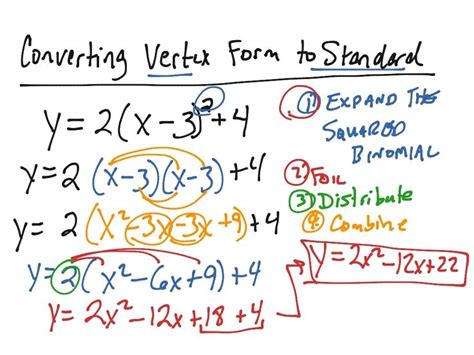 Converting Vertex Form to Standard
y = 2(x-3)² + 4
y = 2(x-3)(x-3) + 4
y = 2(x²-3x-3x+9) + 4
y = 2(x²-6x+9) + 4
y = 2x²-12x+18+4
① EXPAND THE
SQUARED
BINOMIAL
② FOIL
③ Distribute
④ Combine
y = 2x²-12x+22